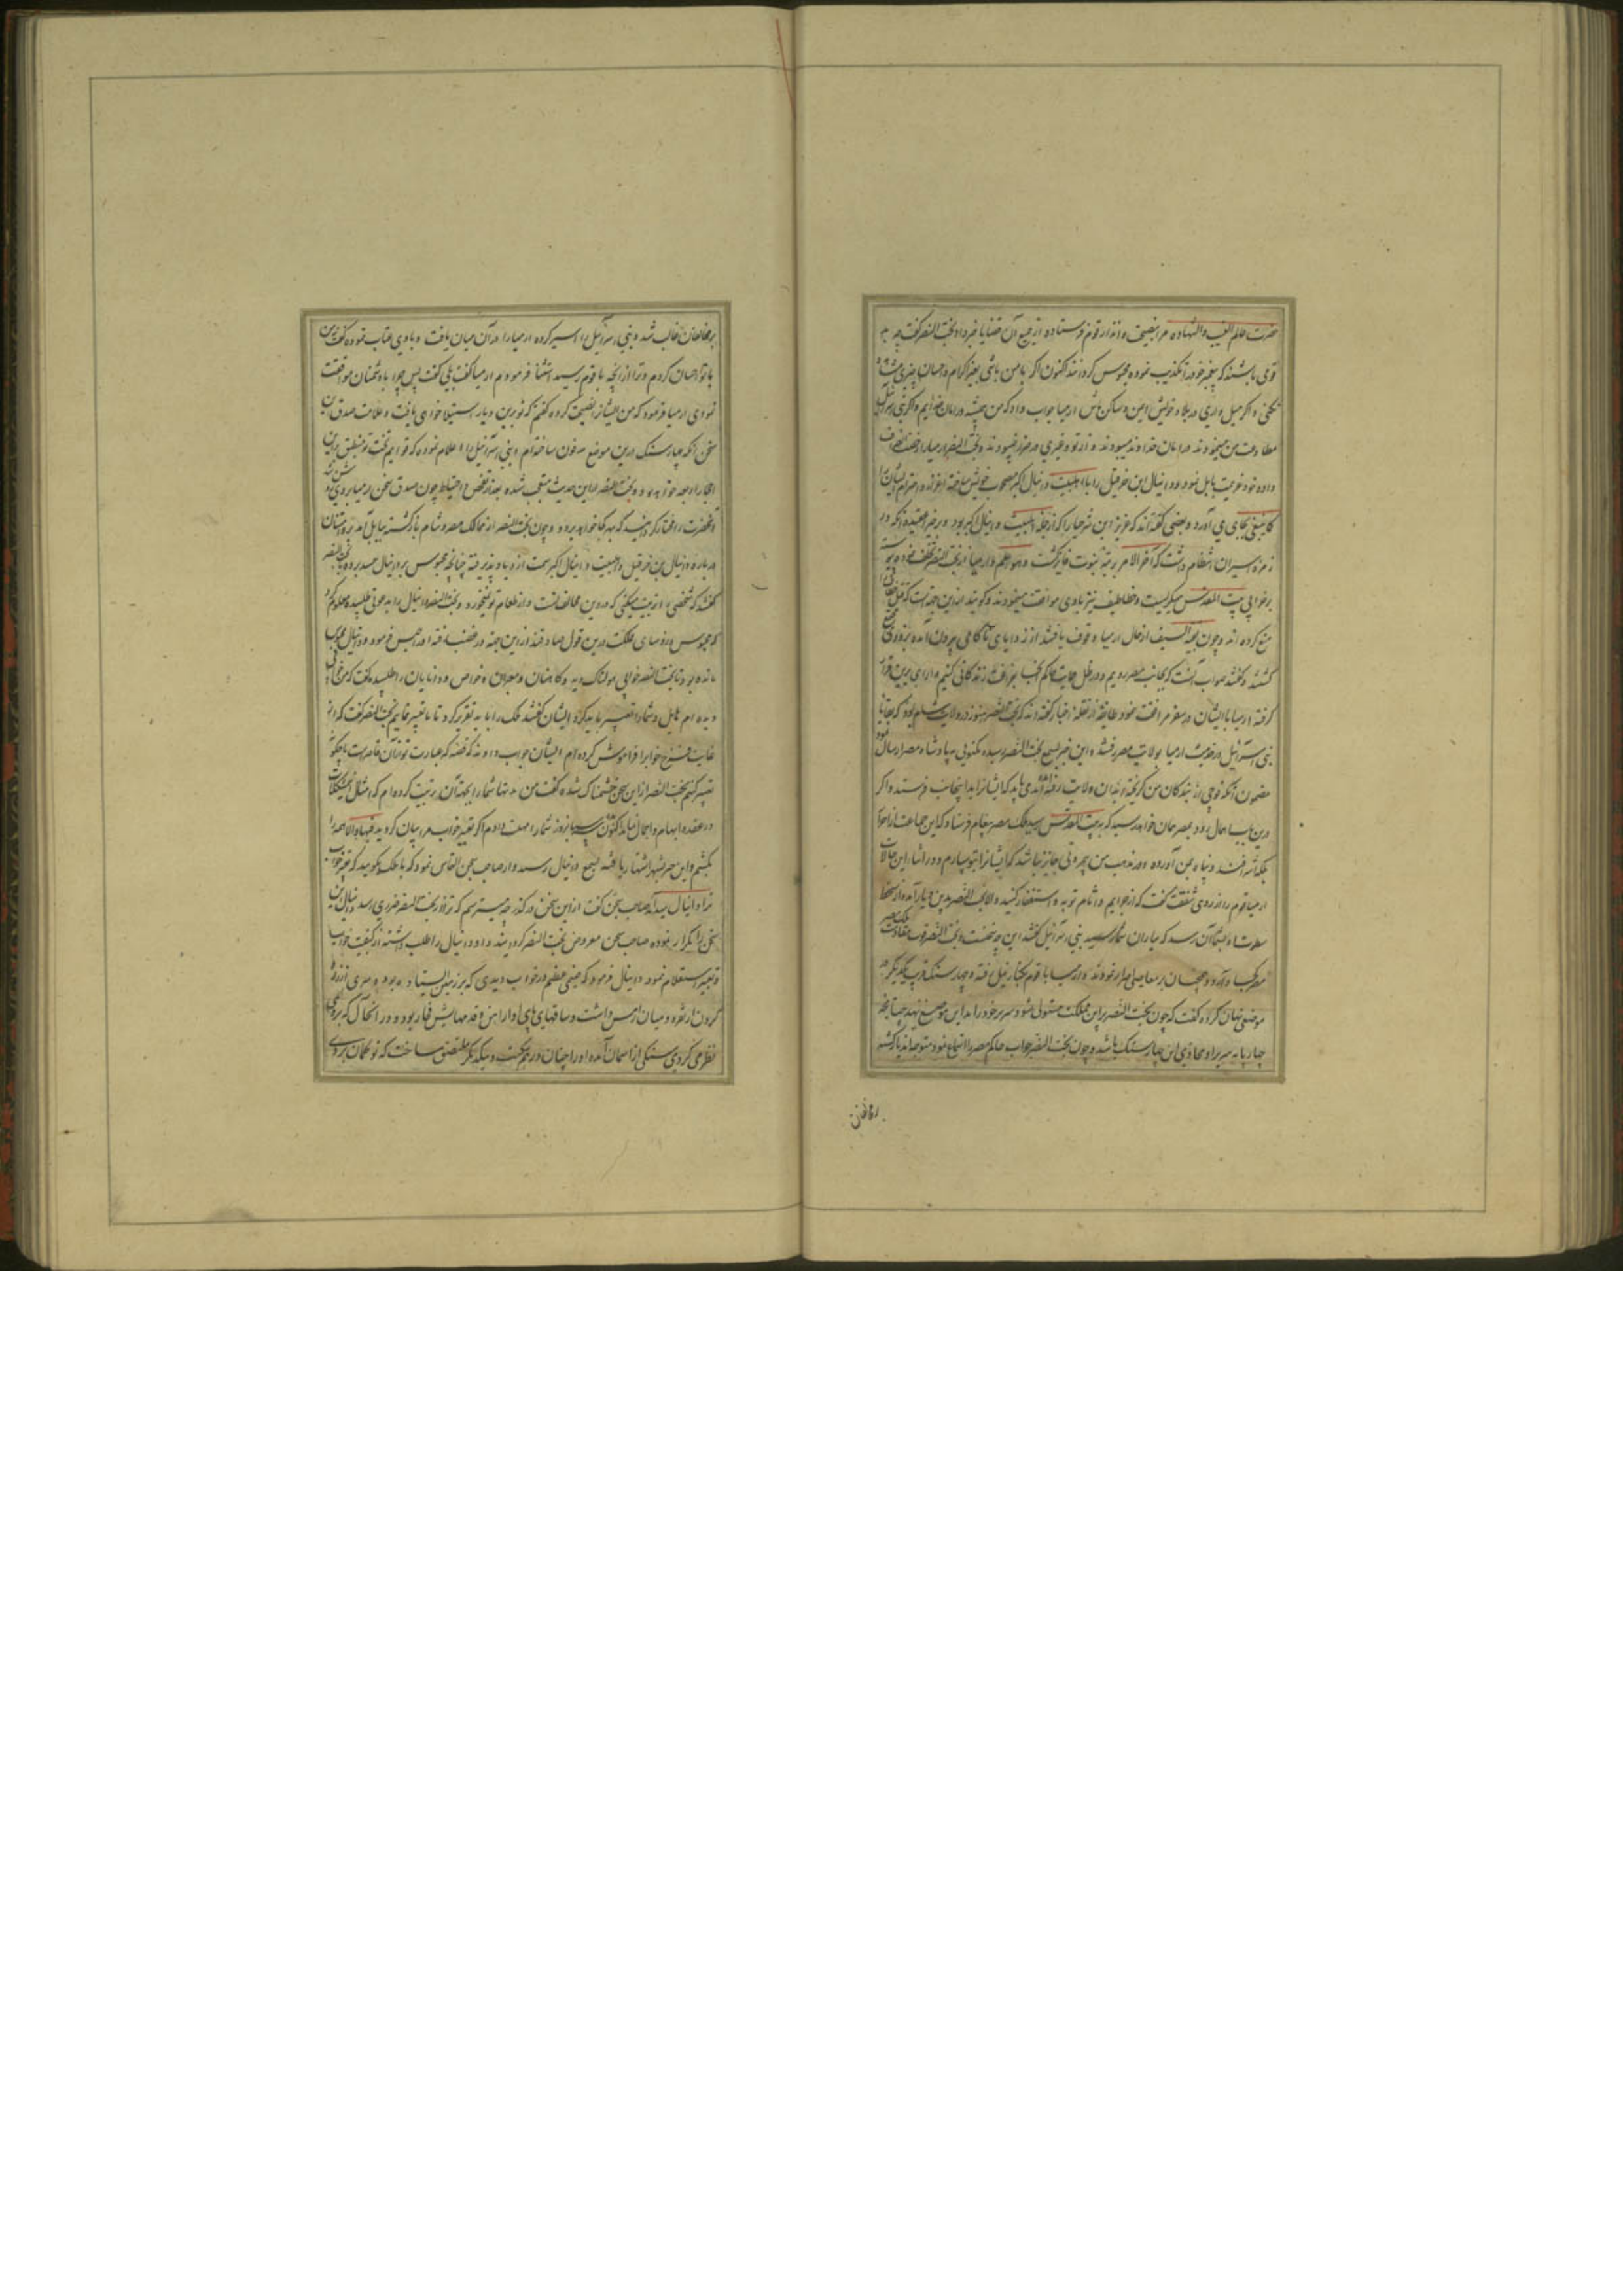 حضرت عالم الغیب والشهاده مرا بنصیحت و انذار قوم فرستاده از جمیع آن قضایا خبر داد بخت النصر گفت چه بد
قومی باشند که پیغمبر خود را تکذیب نموده محبوس گردانند اکنون اگر با من باشی بغیر اکرام و احسان چیزی مشاهده
نکنی و اگر میل داری در بلاد خویش ایمن و ساکن باش ارمیا جواب داد که من همیشه در امان خدایم و اگر بنی اسرائیل
مطاوعت من مینمودند در امان خداوند میبودند و از تو و غیری در ضرر نمیبودند و بخت النصر ارمیا را رخصت انصراف
داده خود عزیمت بابل نمود و دانیال ابن حزقیل را با اهلبیت دانیال اکبر مصحوب خویش ساخته اعزاز و احترام ایشان را
کما ینبغی بجای می آورد و بعضی گفته اند که عزیر ابن شرحیا را که از جمله اهلبیت دانیال اکبر بود و بر خیر عقیده آنکه در
زمره اسیران انتظام داشت که آخر الامر برتبه نبوت فایز گشت و هو اعلم و ارمیا از بخت النصر تخلف نموده پیوسته
بر خرابی بیت المقدس میگریست و خطاطیف نیز با وی موافقت مینمودند و گویند از این جهة است که قتل خطاف را
منع کرده اند و چون بقیة السیف از حال ارمیا وقوف یافتند از زوایای ناکامی بیرون آمده بر وی جمع
گشتند و گفتند صواب آنست که بجانب مصر رویم و در ظل حمایت حاکم آنجا بفراغت زندگانی کنیم و رای برین قرار
گرفته ارمیا با ایشان در سفر مرافقت نمود طایفه از نقله اخبار گفته اند که بخت النصر هنوز در ولایت شام بود که بقایای
بنی اسرائیل در خدمت ارمیا بولایت مصر رفتند و این خبر بسمع بخت النصر رسیده مکتوبی به پادشاه مصر ارسال نمود
مضمون آنکه فوجی از بندگان من گریخته بدان ولایت رفته اند می باید که ایشانرا بدینجانب فرستد و اگر
درین باب اهمال رود بمصر همان خواهد رسید که به بیت المقدس رسید ملک مصر پیغام فرستاد که این جماعت از احرار
بلکه اشرافند و پناه بمن آورده و در مذهب من بمروتی جایز نباشد که ایشانرا بتو سپارم و در اثناء این حالات
ارمیا قوم را از روی شفقت گفت که از جرایم و آثام توبه و استغفار کنید و الا بخت النصر بدین دیار آمده از سخط
سطوت او بشما آن رسد که بیاران شما رسید بنی اسرائیل گفتند این چه سخنست و بخت النصر تاب مقاومت ملک مصر
از کجا آورد و همچنان بر معاصی اصرار نمودند و ارمیا با قوم بکنار نیل رفته و چهار سنگ قریب بیکدیگر در
موضعی نهان کرده گفت که چون بخت النصر برین مملکت مستولی شود سریر خود را بر این موضع نهد چنانچه
چهار پایه سریر او محاذی این چهار سنگ باشد و چون بخت النصر جواب حاکم مصر را استماع نمود متوجه آن دیار گشته
بر مخالفان
بر مخالفان غالب شد و بنی اسرائیل را اسیر کرده ارمیا را در آن میان یافت و با وی عتاب نموده گفت من
با تو احسان کردم و ترا از آنچه با قوم رسید استثنا فرمودم ارمیا گفت بلی گفت پس چرا با دشمنان موافقت
نمودی ارمیا فرمود که من ایشانرا نصیحت کرده گفتم که تو برین دیار استیلا خواهی یافت و علامت صدق این
سخن آنکه چهار سنگ درین موضع مدفون ساخته ام و بنی اسرائیل را اعلام نموده که قوایم تخت تو منطبق برین
احجار اربعه خواهد بود و بخت النصر از این حدیث متعجب شده بعد از تفحص و احتیاط چون صدق سخن ارمیا بر وی روشن شد
آنحضرت را مختار گردانید که بهر کجا خواهد برود و چون بخت النصر از ممالک مصر و شام بازگشته ببابل آمد
در باره دانیال بن حزقیل و اهلبیت دانیال اکبر سمت ازدیاد پذیرفته چنانچه مجوس بر دانیال حسد برده با بخت النصر
گفتند که شخصی را تربیت میکنی که در دین مخالف تست و از طعام تو نمیخورد و بخت النصر دانیال را بدعوتی طلبیده معلوم کرد
که مجوس و رؤسای مملکت درین قول صادقند از این جهة در غضب رفته او را حبس فرمود و دانیال محبوس
مانده بود تا بخت النصر خوابی هولناک دید و کاهنان و معبران و خواص و دانایان را طلبیده گفت که من خوابی
دیده ام هایل و شما را تعبیر باید کرد ایشان گفتند ملک را باید تقریر کرد تا ما تعبیر نماییم بخت النصر گفت که از
غایت فزع خواب را فراموش کرده ام ایشان جواب دادند که قصه که عبارت تو از آن قاصر است ما چگونه
تعبیر کنیم بخت النصر از این سخن خشمناک شده گفت من مدتها شما را بجهة آن تربیت کرده ام که امثال این مشکلات
در عقده ابهام و اجمال نماند اکنون سه روز شما را مهلت دادم اگر تعبیر خواب مرا بیان کردید فبها و الا همه را
بکشم و این خبر بشهر اشتهار یافته بسمع دانیال رسید و از صاحب سجن التماس نمود که با ملک بگوئید که تعبیر خواب
ترا دانیال میداند صاحب سجن گفت از این سخن درگذر چه میترسم که ترا از بخت النصر ضرری رسد و دانیال این
سخن را تکرار نموده صاحب سجن معروض بخت النصر گردانید و او دانیال را طلب داشته از کیفیت خواب
و تعبیر استعلام نمود دانیال فرمود که صنمی عظیم در خواب دیدی که بر زمین ایستاده بود و سری از زر و
گردن از نقره و میان از مس داشت و ساقهای پای او از آهن و قدمهایش فخار بود و در آنحال که بر وی
نظر می کردی سنگی از آسمان آمده او را چنان در هم شکست و بیکدیگر ملتصق ساخت که تو گمان بردی